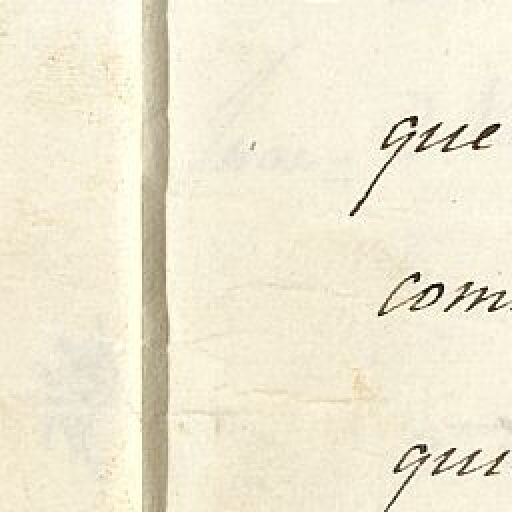 que
com
qui